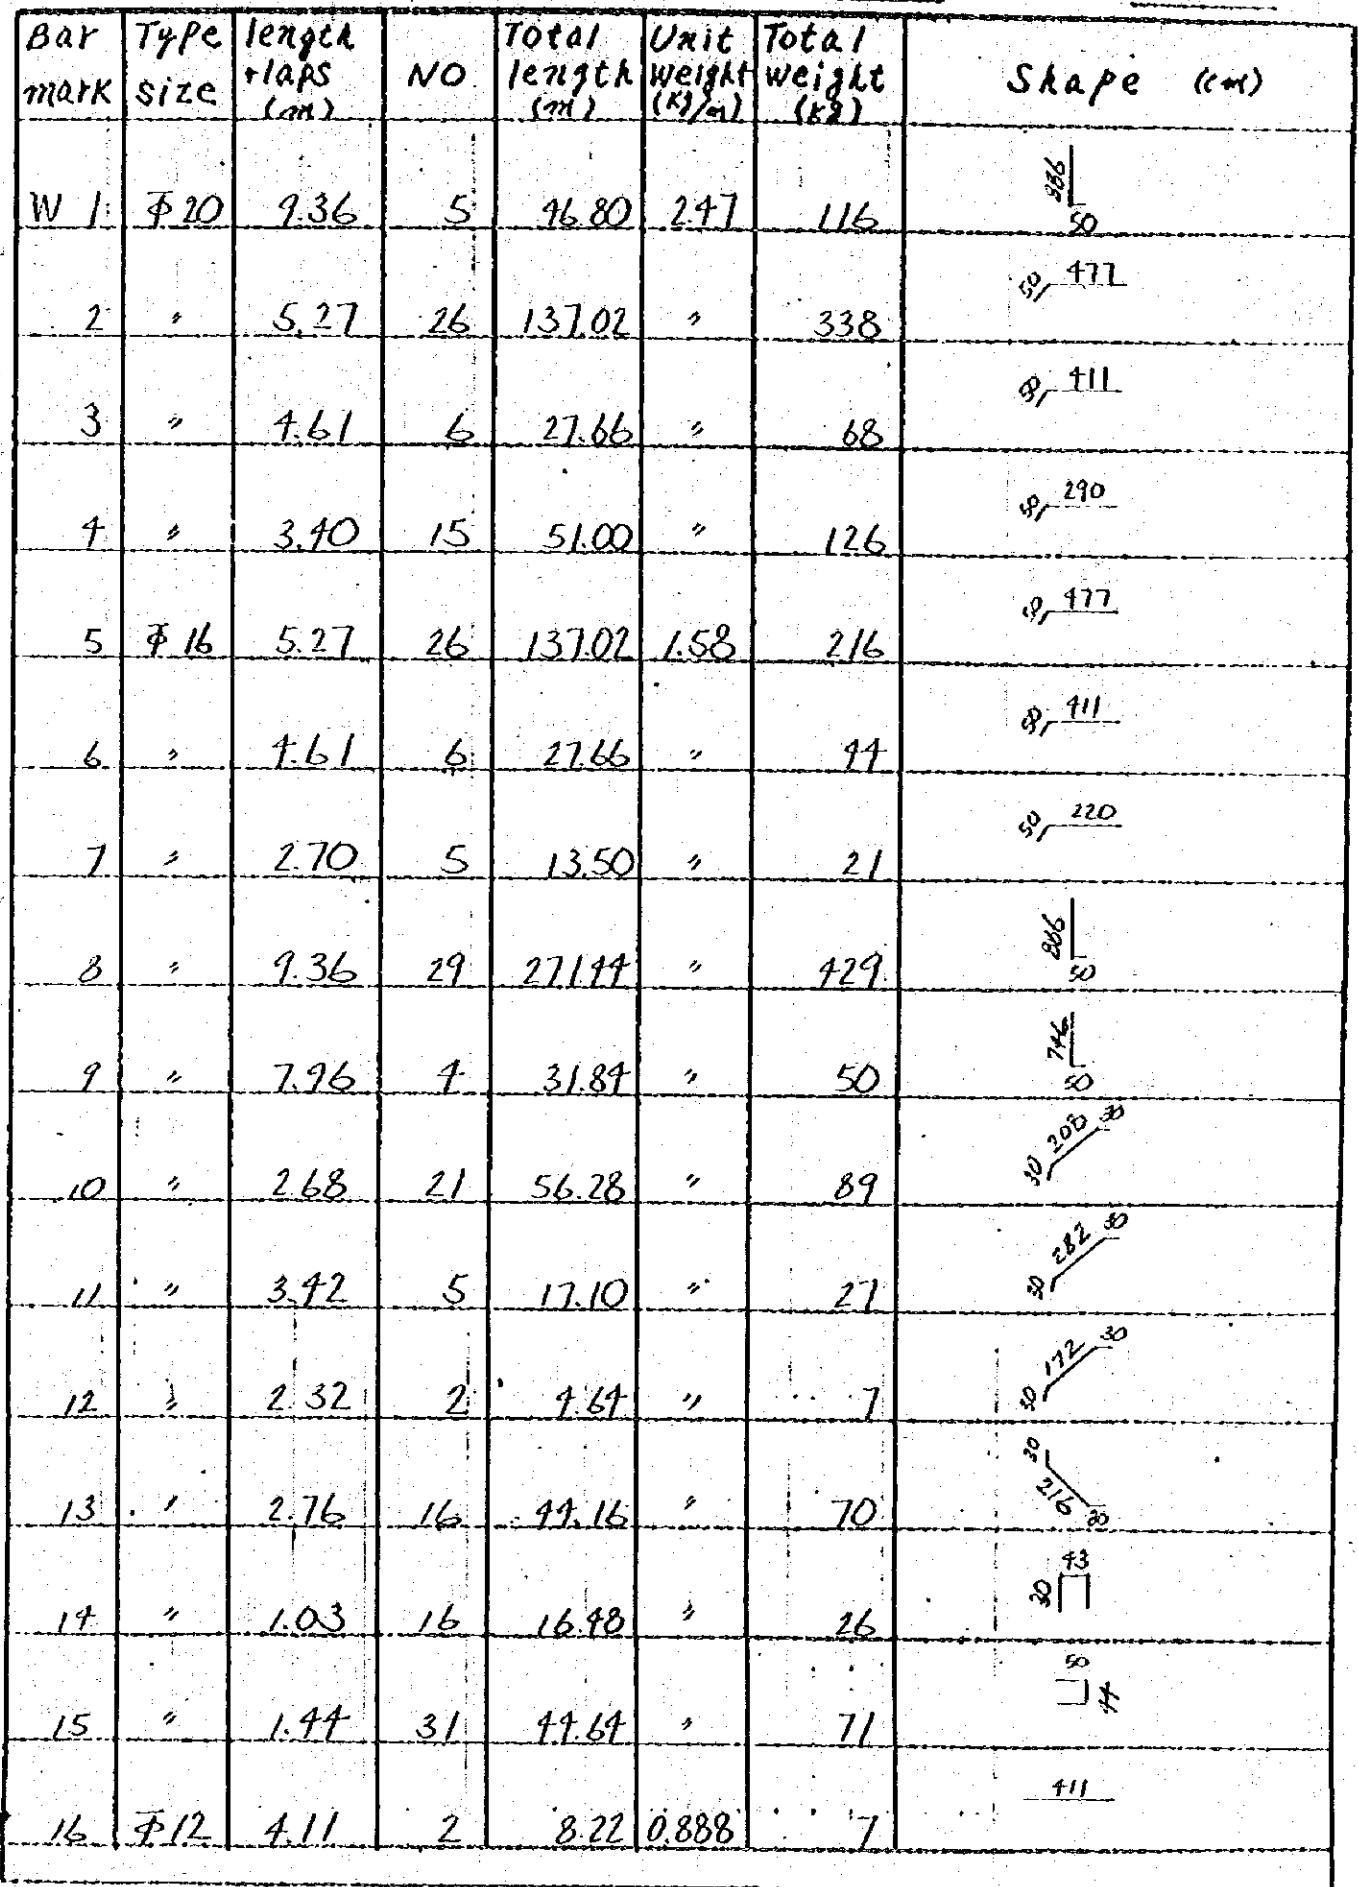 Bar mark Type size length +laps (m) NO Total length (m) Unit weight (Kg/m) Total weight (Kg) Shape (cm)
W 1 Φ20 9.36 5 46.80 2.47 116 886 50
2 〃 5.27 26 137.02 〃 338 50 477
3 〃 4.61 6 27.66 〃 68 50 411
4 〃 3.40 15 51.00 〃 126 50 290
5 Φ16 5.27 26 137.02 1.58 216 50 477
6 〃 4.61 6 27.66 〃 44 50 411
7 〃 2.70 5 13.50 〃 21 50 220
8 〃 9.36 29 271.44 〃 429 886 50
9 〃 7.96 4 31.84 〃 50 746 50
10 〃 2.68 21 56.28 〃 89 30 208 30
11 〃 3.42 5 17.10 〃 27 30 282 30
12 〃 2.32 2 4.64 〃 7 30 172 30
13 〃 2.76 16 44.16 〃 70 30 216 30
14 〃 1.03 16 16.48 〃 26 30 43
15 〃 1.44 31 44.64 〃 71 50 44
16 Φ12 4.11 2 8.22 0.888 7 411